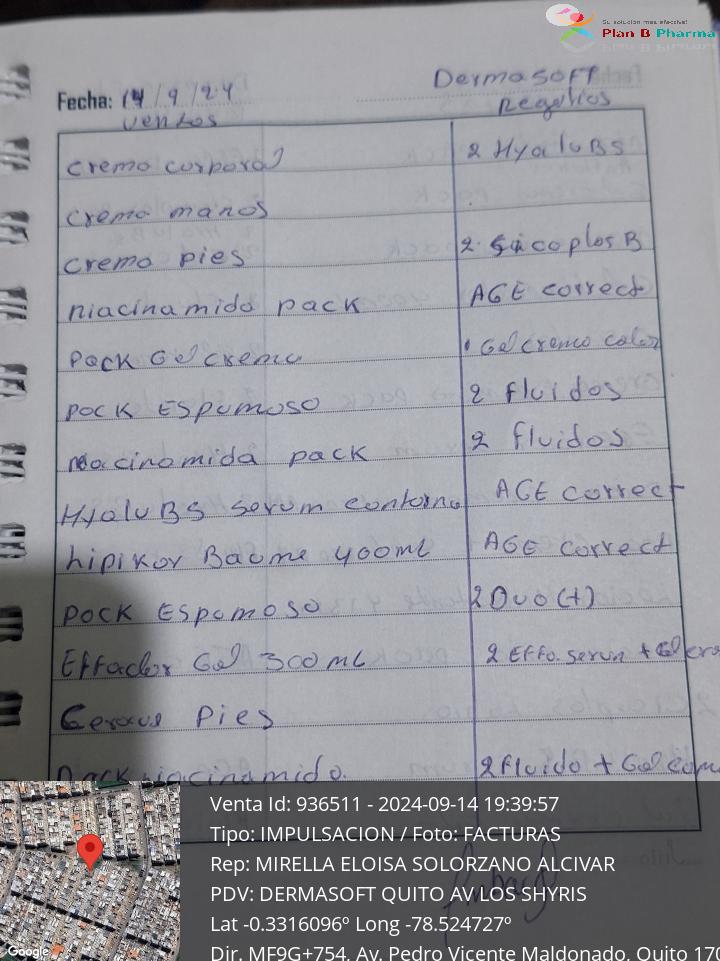 Su solución más efectiva!
Plan B Pharma
Dermasoft
Fecha: 14/9/24
Regalios
Ventas
Crema corporal 2 Hyalu B5
Crema manos
Crema pies 2 Cicaplas B
Niacinamida pack AGE correct
Pack Gel crema Gel crema color
Pack Espumoso 2 fluidos
Niacinamida pack 2 fluidos
Hyalu B5 serum contorno AGE correct
Lipikar Baume 400ml AGE correct
Pack Espumoso 2 Duo (+)
Effaclar Gel 300 mL 2 Effa. serum + Gel
Cerave Pies
Pack niacinamida. 2 fluido + Gel
Venta Id: 936511 - 2024-09-14 19:39:57
Tipo: IMPULSACION / Foto: FACTURAS
Rep: MIRELLA ELOISA SOLORZANO ALCIVAR
PDV: DERMASOFT QUITO AV LOS SHYRIS
Lat -0.3316096º Long -78.524727º
Dir. MF9G+754, Av. Pedro Vicente Maldonado, Quito 170
Google